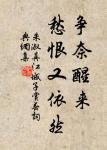 争奈醒来
愁恨又依然
朱淑真江城子赏春词
典網集